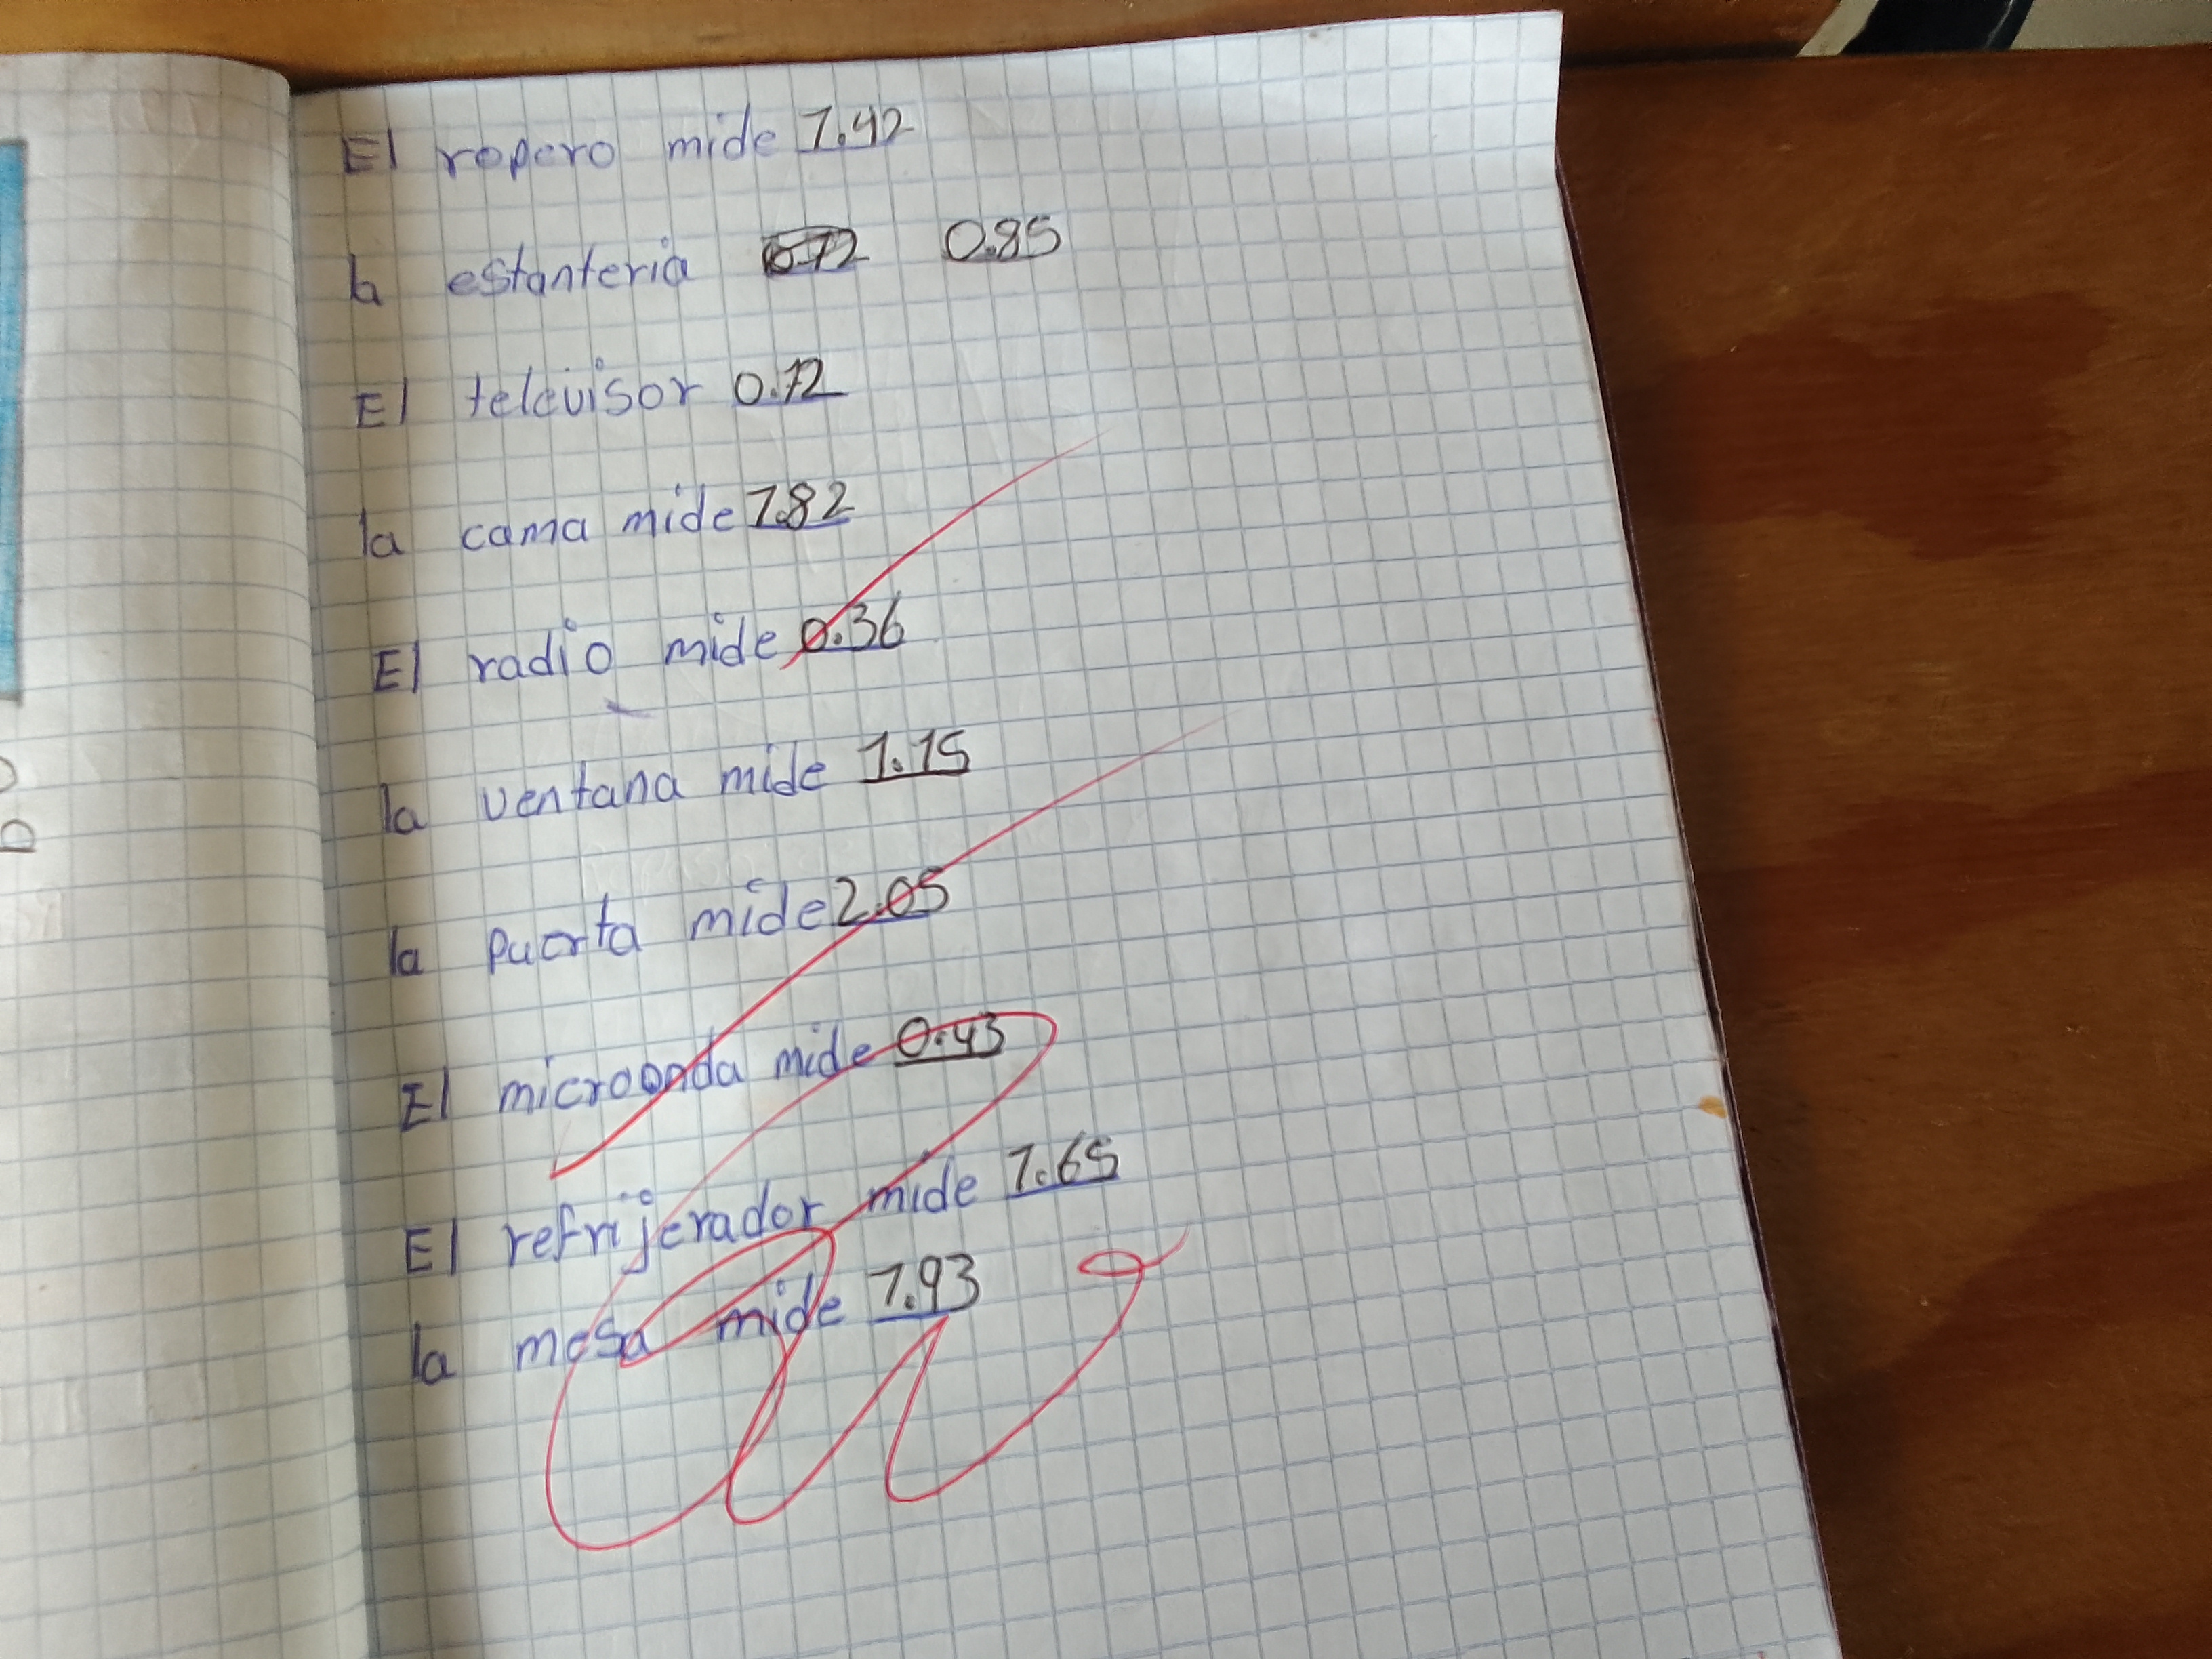 El ropero mide 1.42
la estanteria 0.85
El televisor 0.72
la cama mide 1.82
El radio mide 0.36
la ventana mide 1.15
la puerta mide 2.05
El microonda mide 0.43
El refrijerador mide 1.65
la mesa mide 1.93